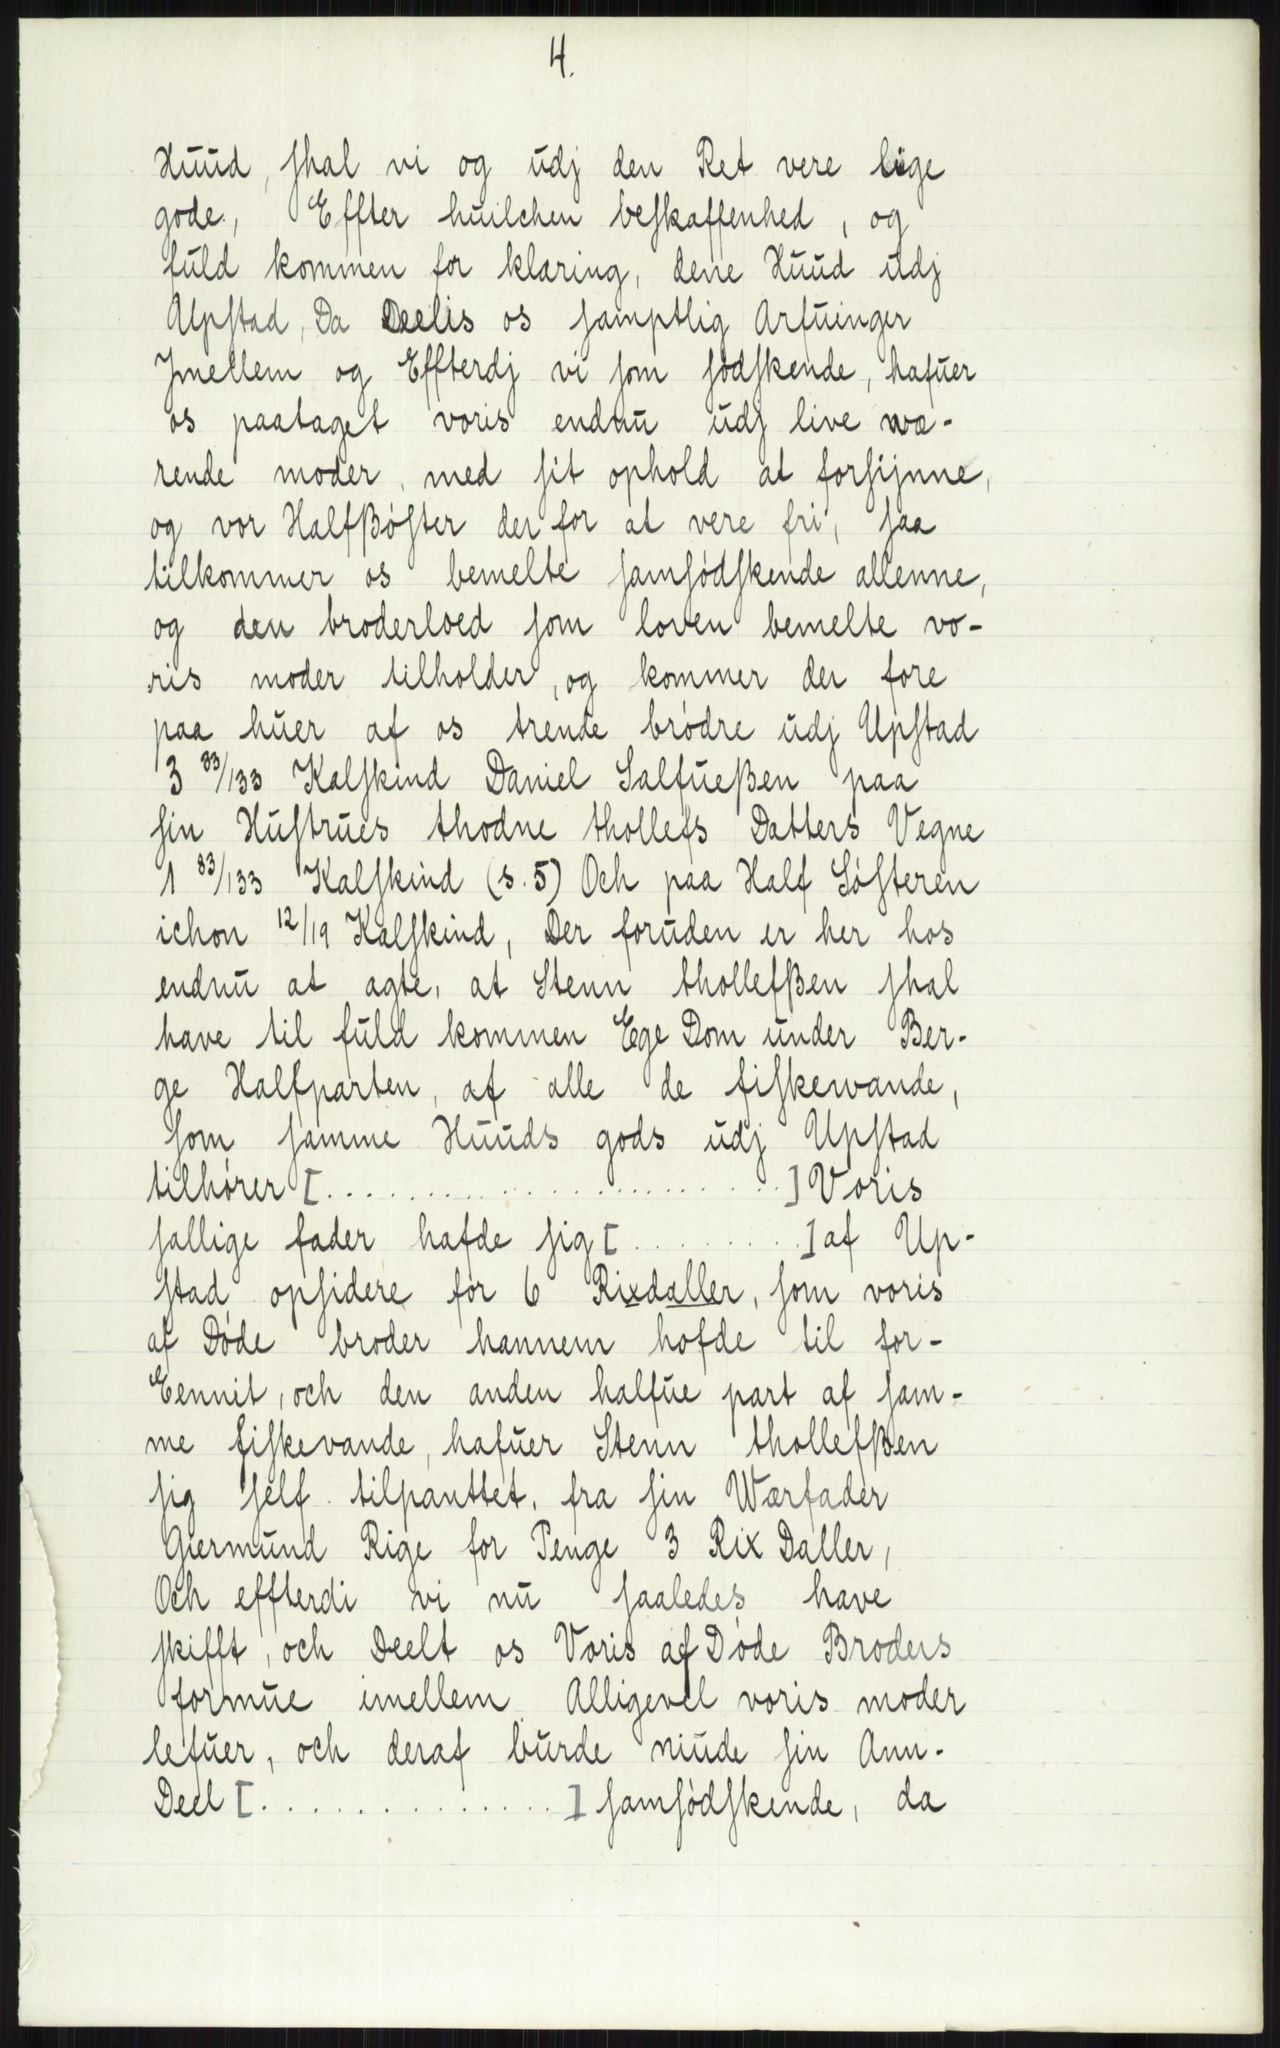 4.
Huud, skal vi og udj den Ret vere liige
gode, Effter huilchen beskaffenhed, og
fuld kommen for klaring, dene Huud udj
Upstad, Da Deelis os samptlig Arfuinger
Jmellem og Effterdj vi som sødskende, hafuer
os paataget voris endnu udj live wæ-
rende moder, med sit ophold at forsijnne,
og vor Halfßøster der for at vere fri, saa
tilkommer os bemelte samsødskende allenne,
og den broderloed som loven bemelte vo-
ris moder tilholder, og kommer der fore
paa huer af os trende brødre udj Upstad
3 33/133 Kalskind Daniel Salfueßen paa
sin Hustrues thodne thollefs Datters Vegne
1 83/133 Kalskind (s. 5) Och paa Half Søsteren
ichon 12/19 Kalskind, Der foruden er her hos
endnu at agte, at Stenn thollefßen skal
have til fuld kommen Ege Dom under Ber-
ge Halfparten, af alle de fiskewande,
som samme Huuds gods udj Upstad
tilhører [. . . . . . . . . . . . . . . . . . . . . . .] Voris
sallige fader hafde sig [. . . . . . . . .] af Up-
stad opsidere for 6 Rixdaller, som voris
af Døde broder hannem hofde til for-
Eennit, och den anden halfue part af sam-
me fiskevande, hafuer Stenn thollefßen
sig self tilpanttet, fra sin Wærfader
Giermund Rige for Penge 3 Rix Daller,
Och effterdi vi nu saaledes have
skifft, och Deelt os Voris af Døde Broders
formue imellem Alligevel voris moder
lefuer, och deraf burde niude sin Ann-
Deel [. . . . . . . . . . . . . . .] samsødskende, da